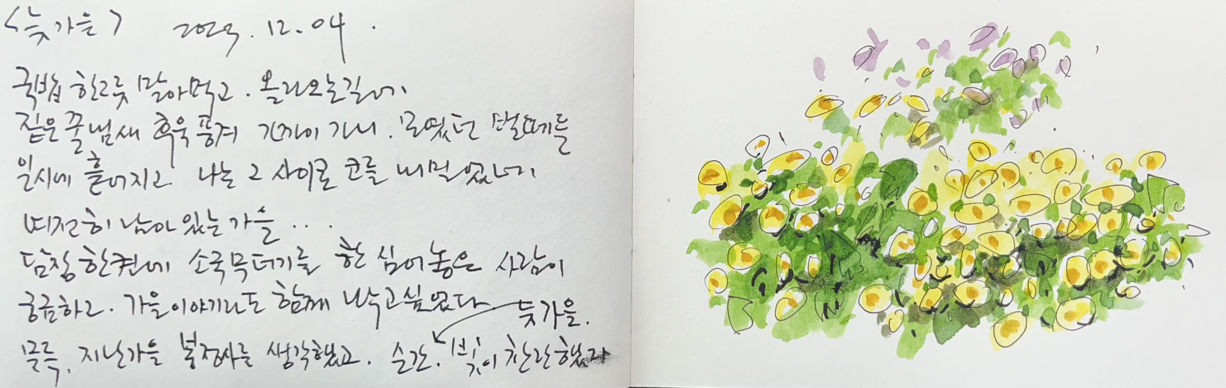 <늦가을> 2023.12.04.
국밥 한그릇 말아먹고. 올라오는길에
짙은 꿀냄새 후욱 풍겨 가까이 가니. 모였던 벌떼들
일시에 흩어지고 나는 그 사이로 코를 내밀었네
여전히 남아있는 가을...
담장 한켠에 소국무더기를 심어놓은 사람이
궁금하고. 가을이야기라도 함께 나누고싶었다
늦가을.
문득, 지난가을 봉정사를 생각했고. 순간. 빛이 찬란했다